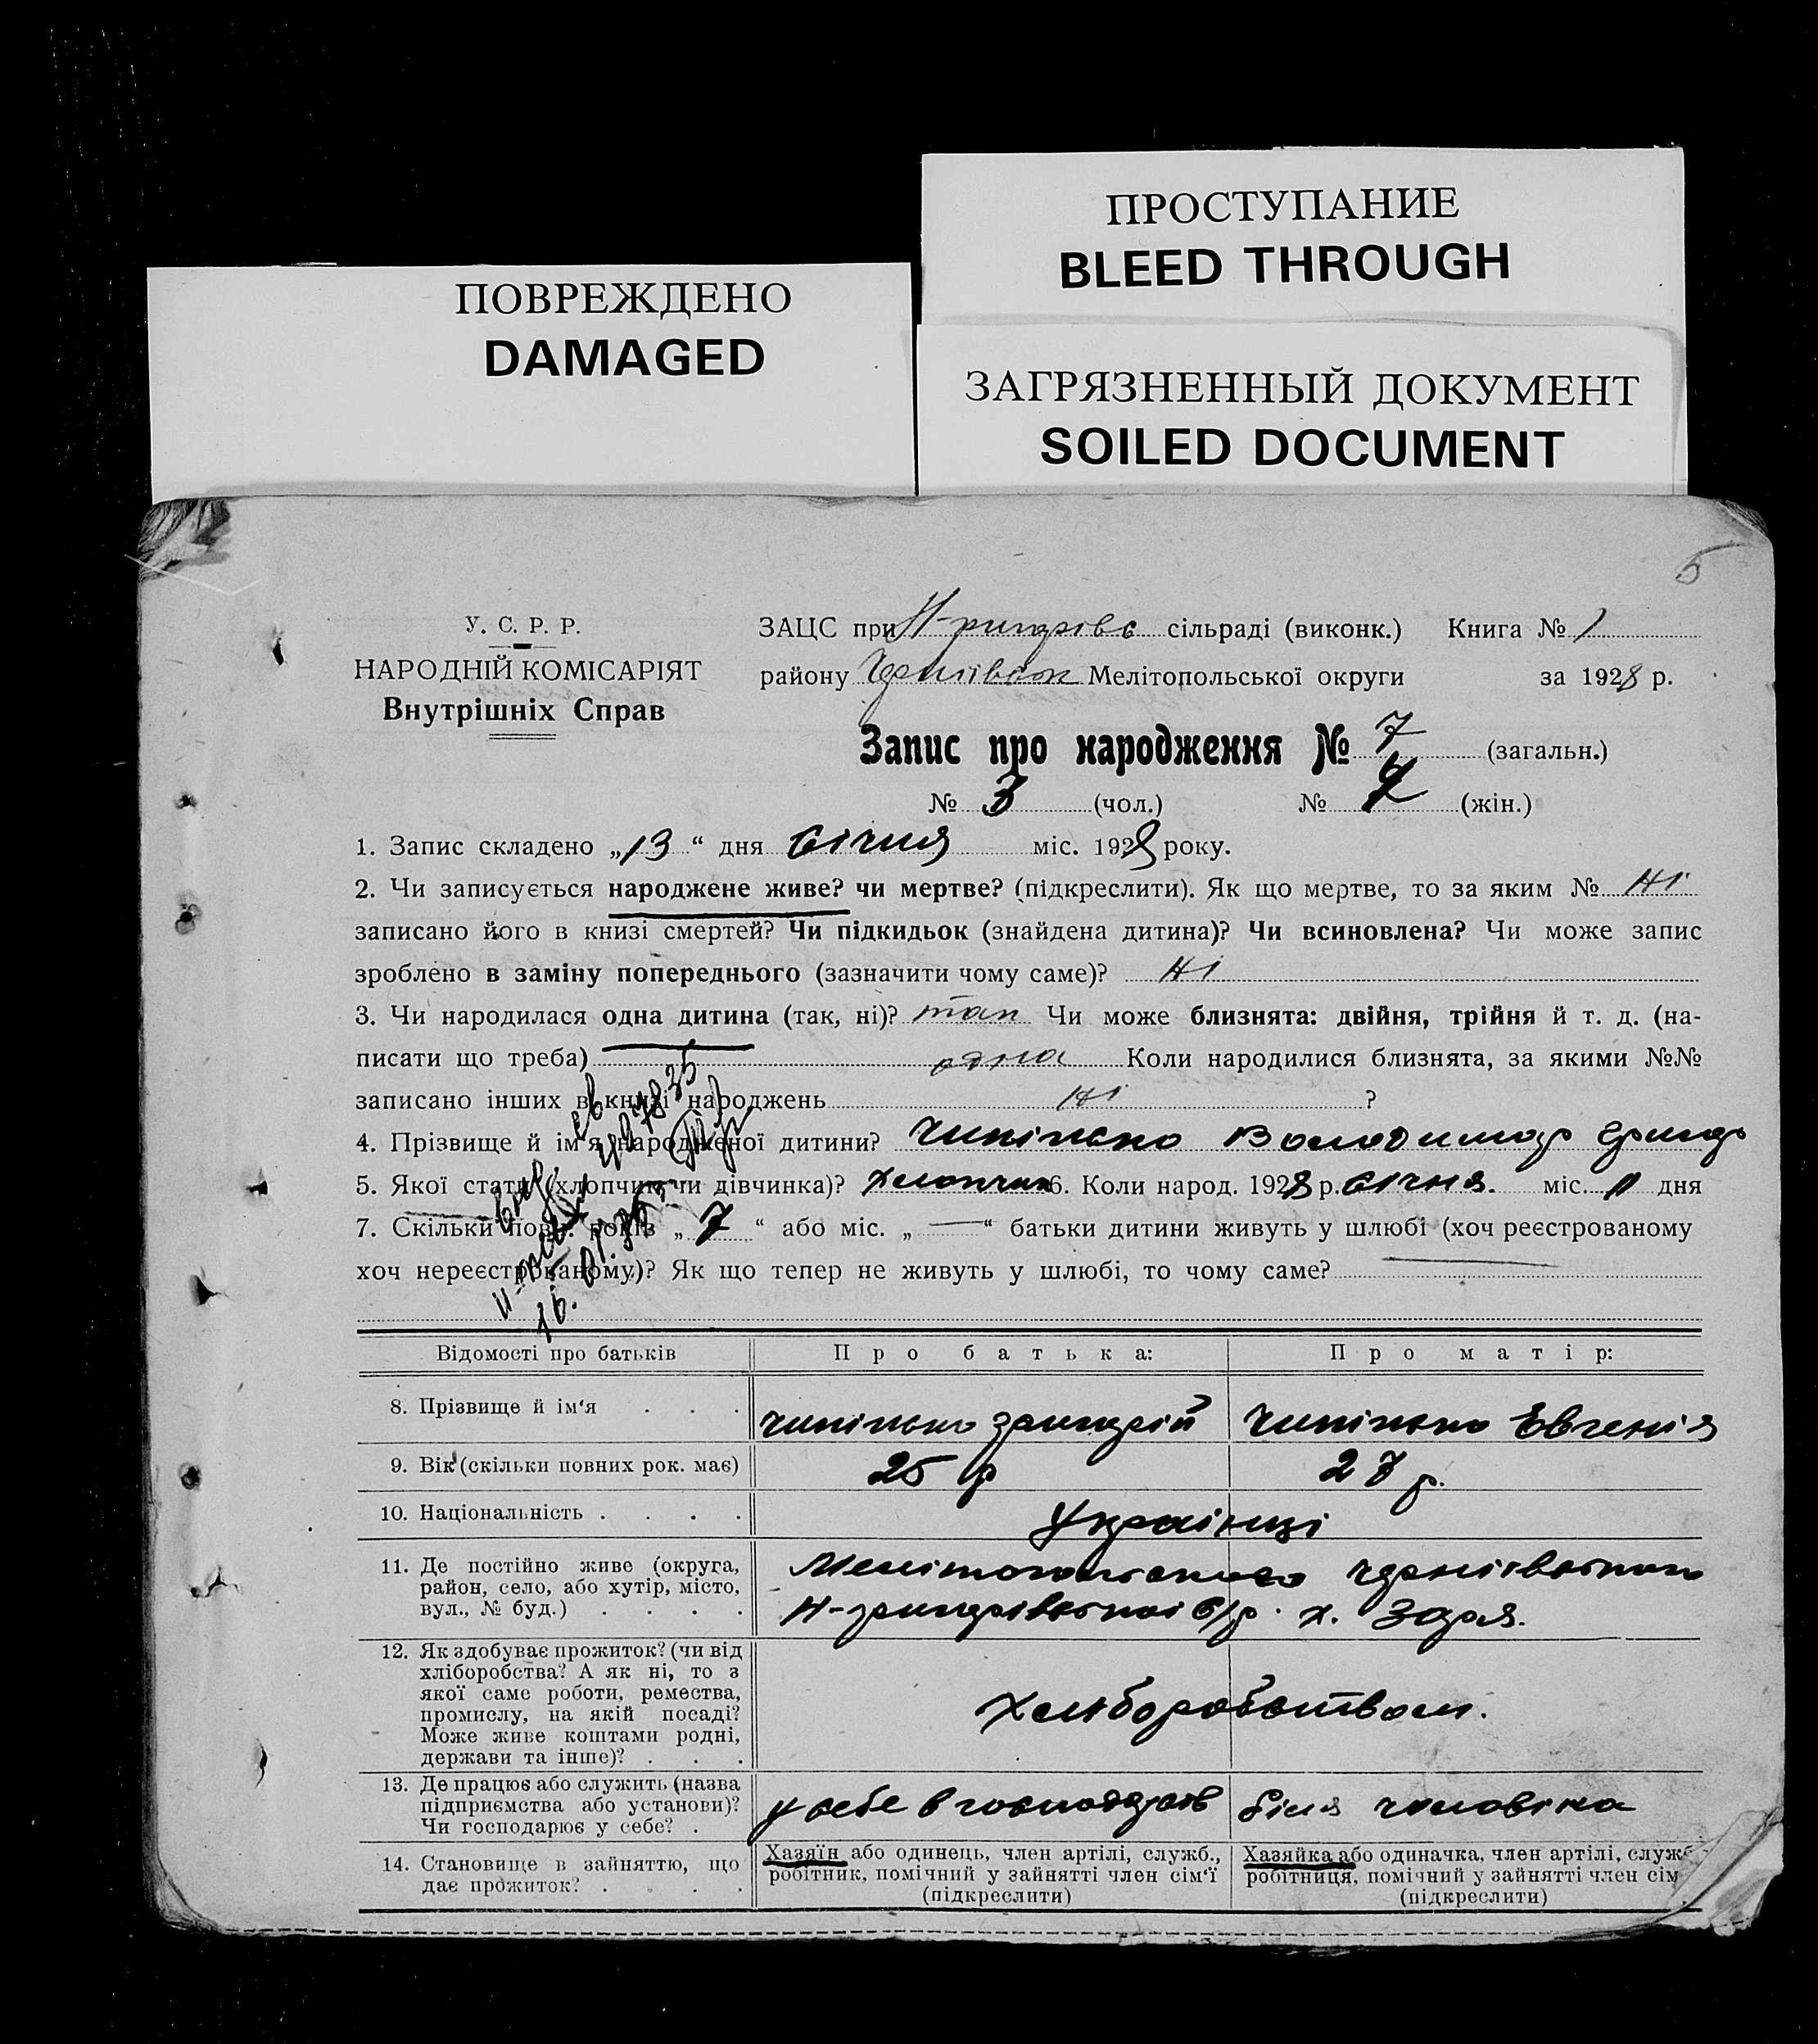 ПРОСТУПАНИЕ
BLEED THROUGH
ПОВРЕЖДЕНО
DAMAGED
ЗАГРЯЗНЕННЫЙ ДОКУМЕНТ
SOILED DOCUMENT
5
У. С. Р. Р.
НАРОДНІЙ КОМІСАРІЯТ
Внутрішніх Справ
ЗАЦС при сільраді (виконк.) Книга № 1
району Мелітопольської округи за 1928 р.
Запис про народження № 7 (загальн.)
№ 3 (чол.) № (жін.)
1. Запис складено „13“ дня січня міс. 1928 року.
2. Чи записується народжене живе? чи мертве? (підкреслити). Як що мертве, то за яким № ні
записано його в книзі смертей? Чи підкидьок (знайдена дитина)? Чи всиновлена? Чи може запис
зроблено в заміну попереднього (зазначити чому саме)? ні
3. Чи народилася одна дитина (так, ні)? так Чи може близнята: двійня, трійня й т. д. (на-
писати що треба) одна Коли народилися близнята, за якими №№
записано інших в книзі народжень ні ?
4. Прізвище й ім'я народженої дитини? Володимир
5. Якої стати (хлопчик чи дівчинка)? Хлопчик 6. Коли народ. 1928 р. січня. міс. дня
7. Скільки повн. років „7“ або міс. „—“ батьки дитини живуть у шлюбі (хоч реєстрованому
хоч нереєстрованому)? Як що тепер не живуть у шлюбі, то чому саме?
Відомості про батьків Про батька: Про матір:
8. Прізвище й ім‘я . . . Євгенія
9. Вік (скільки повних рок. має) 25 р 27 р.
10. Національність . . . . Українці
11. Де постійно живе (округа,
район, село, або хутір, місто,
вул., № буд.) . . . .
х. Зоря.
12. Як здобуває прожиток? (чи від
хліборобства? А як ні, то з
якої саме роботи, ремества,
промислу, на якій посаді?
Може живе коштами родні,
держави та інше)? . . .
Хліборобством.
13. Де працює або служить (назва
підприємства або установи)?
Чи господарює у себе? .
у себе в господарстві
біля чоловіка
14. Становище в зайняттю, що
дає прожиток? . . . .
Хазяїн або одинець, член артілі, служб.,
робітник, помічний у зайнятті член сім‘ї
(підкреслити)
Хазяйка або одиначка, член артілі, служб
робітниця, помічний у зайнятті член сім
(підкреслити)